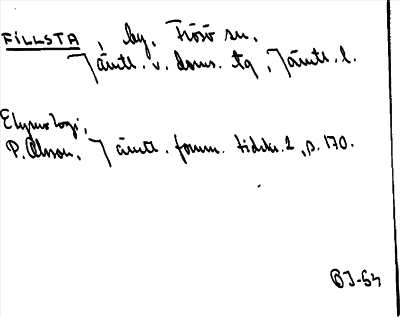 FILLSTA, by, Frösö sn.
Jämtl. v. doms. tg, Jämtl. l.
Etymologi,
P. Olsson, Jämtl. fornm. tidskr. 2, p. 170.
BJ-54